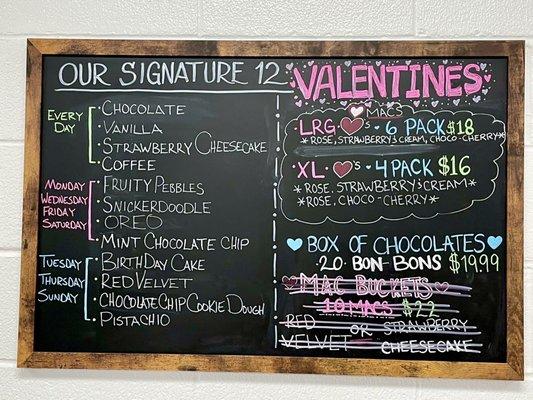 OUR SIGNATURE 12
EVERY DAY
CHOCOLATE
VANILLA
STRAWBERRY CHEESECAKE
COFFEE
MONDAY
WEDNESDAY
FRIDAY
SATURDAY
FRUITY PEBBLES
SNICKERDOODLE
OREO
MINT CHOCOLATE CHIP
TUESDAY
THURSDAY
SUNDAY
BIRTHDAY CAKE
RED VELVET
CHOCOLATE CHIP COOKIE DOUGH
PISTACHIO
VALENTINES
MACS
LRG ♥'s - 6 PACK $18
*ROSE, STRAWBERRY & CREAM, CHOCO-CHERRY*
XL ♥'s - 4 PACK $16
*ROSE, STRAWBERRY & CREAM*
*ROSE, CHOCO-CHERRY*
BOX OF CHOCOLATES
20 BON BONS $19.99
MAC BUCKETS
10 MACS $22
RED VELVET OR STRAWBERRY CHEESECAKE